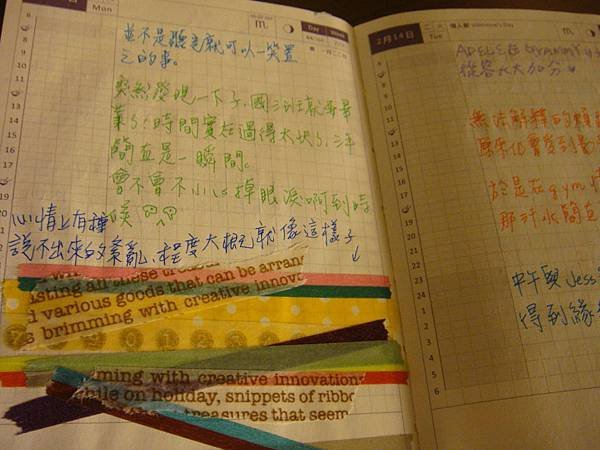 Mon
Day
Week
並不是聽完就可以一笑置
之的事。
突然發現一下子,國三班就要畢
業了!時間實在過得太快了,三年
簡直是一瞬間。
會不會不小心掉眼淚啊到時
候
心情上有種
說不出來的紊亂,程度大概就像這樣子
isting all these
that can be arran
d various goods
s brimming with creative innov
ming with creative innovations
on holiday, snippets of ribbo
treasures that seem
2月14日
Tue
情人節 Valentine's Day
ADELE在Grammy
從容大大加分
無法解釋的煩
於是在gym
那汗水簡直
中午與Jess
得到緣